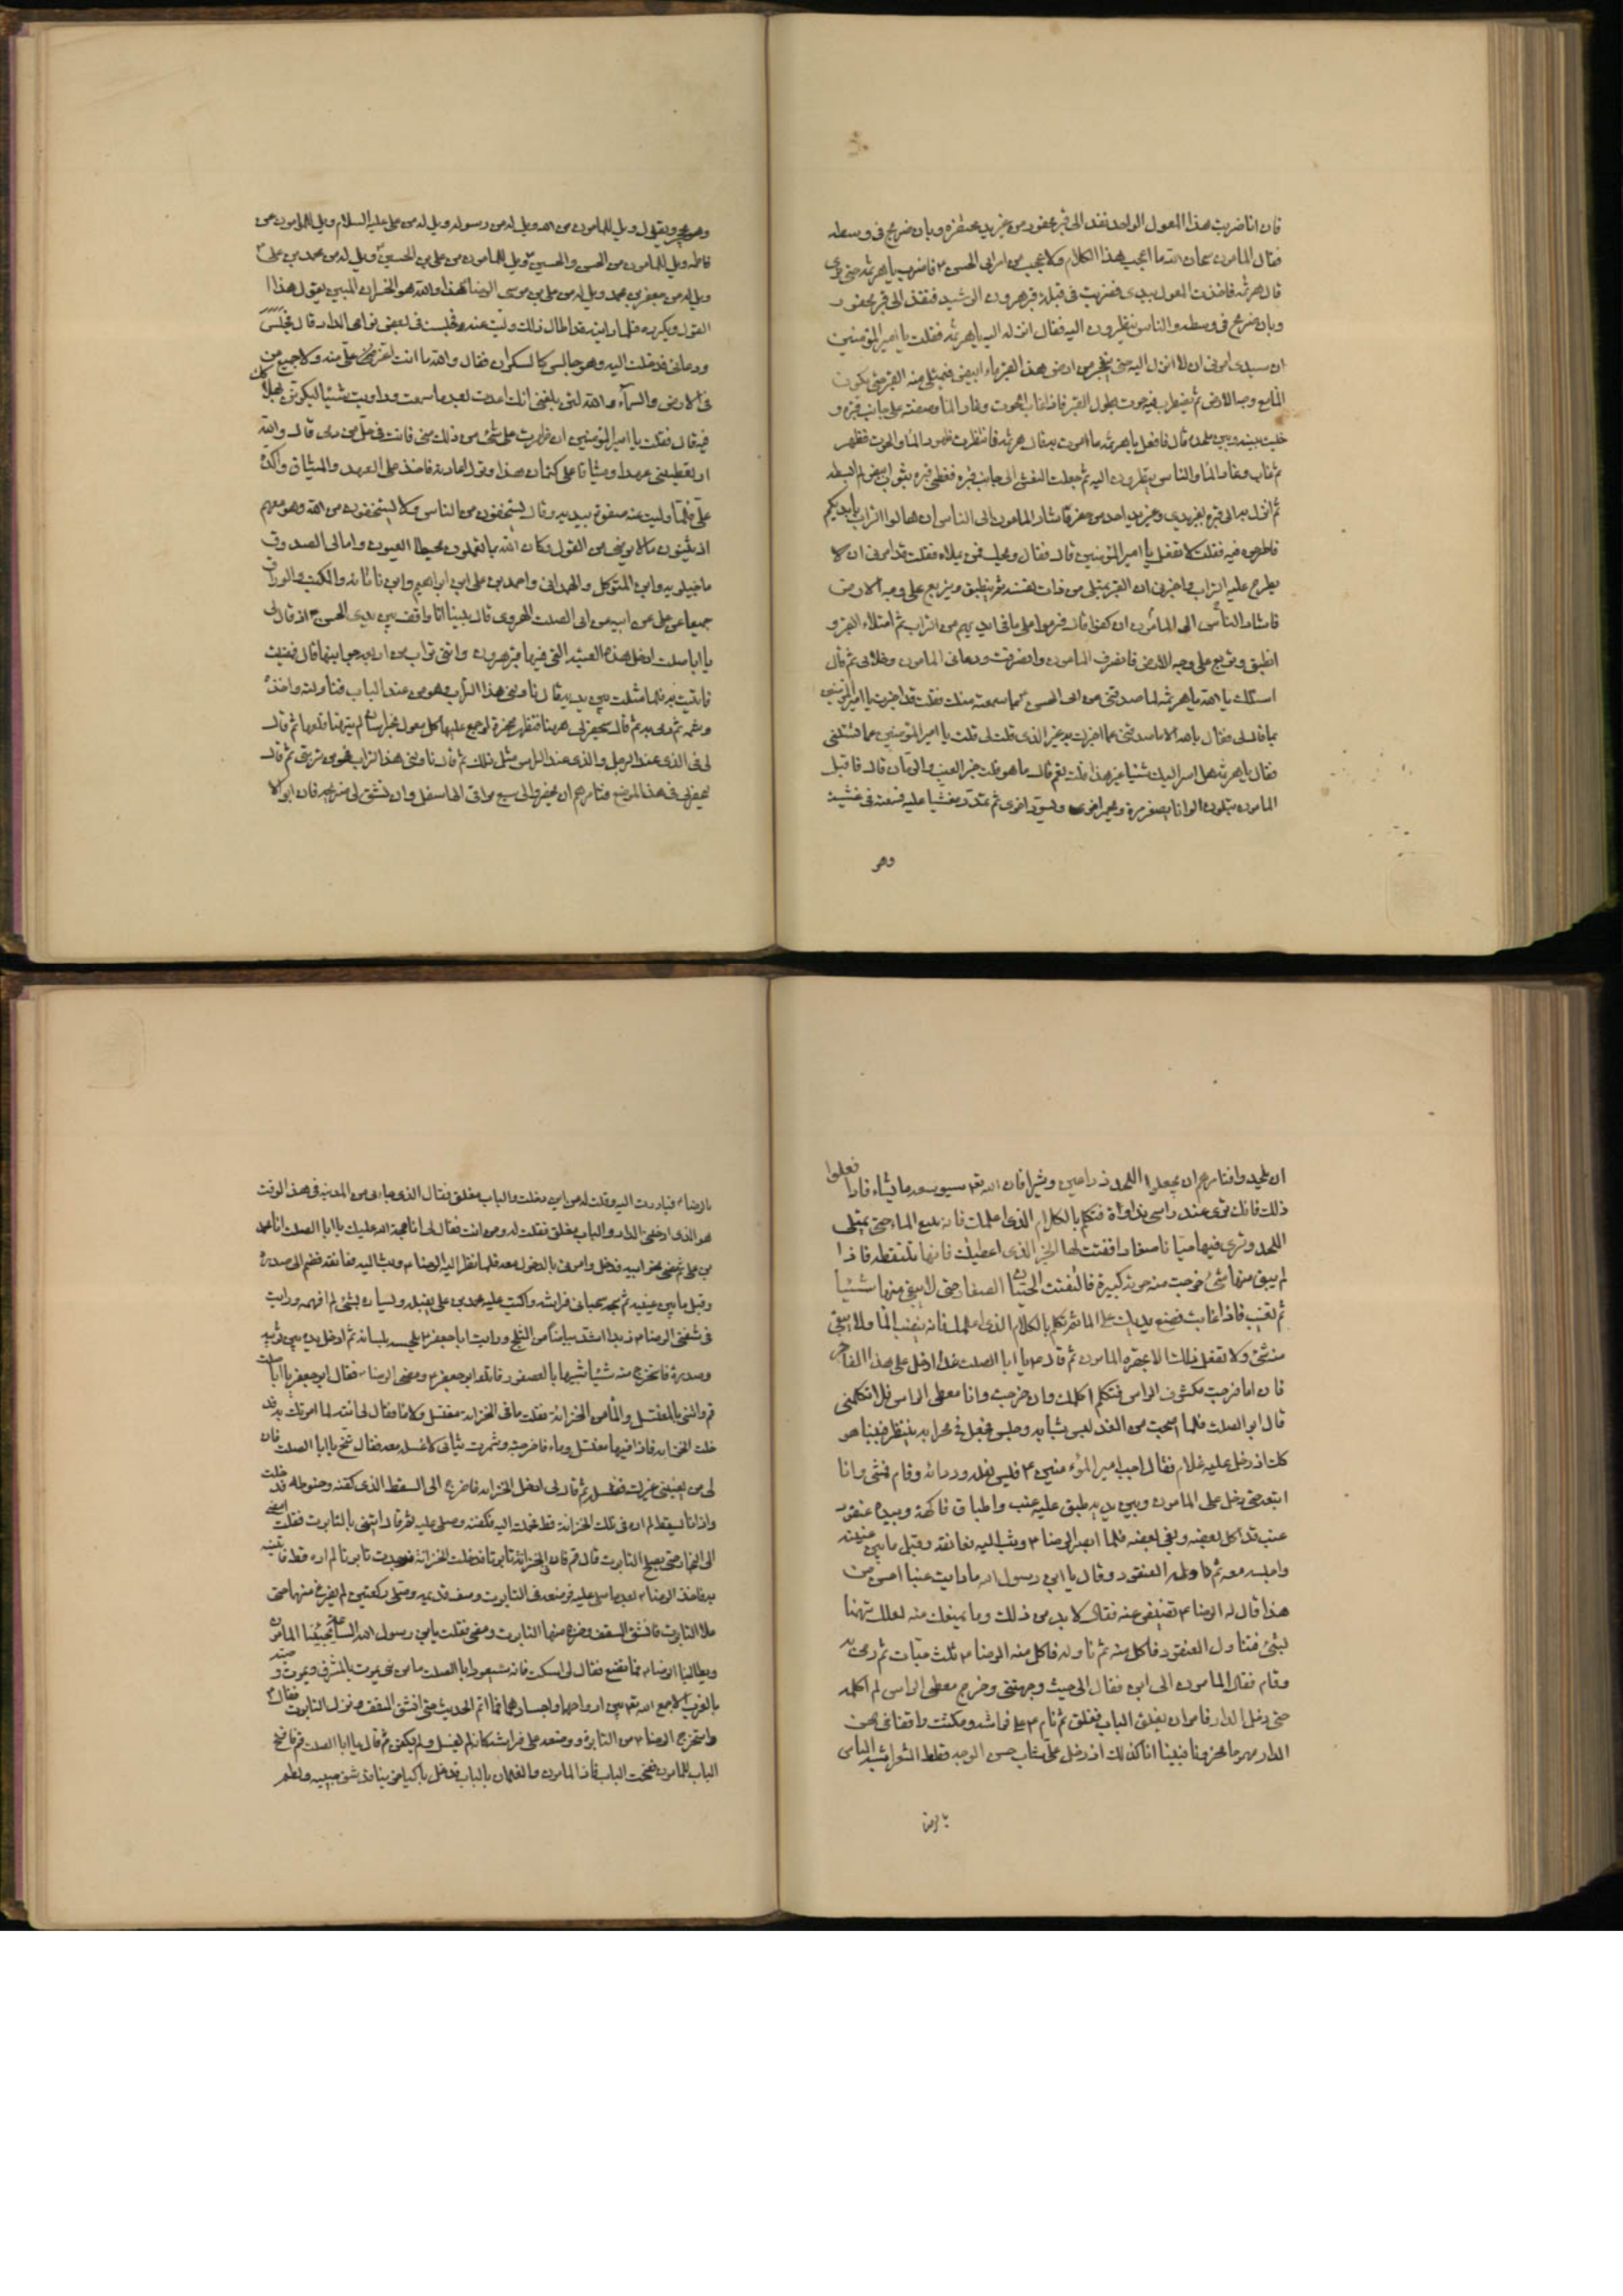 فان انا ضربت هذا المعول الواحد نفذ الى قبر محفور من غير يد تحفره وبان ضريح فى وسطه
فقال المأمون سبحان الله ما اعجب هذا الكلام ولا عجب من امر ابى الحسن ع فاضرب يا هرثمة حتى نرى
قال هرثمة فاخذت المعول بيدى فضربت فى قبلة قبر هرون الرشيد فنفذ الى قبر محفور
وبان ضريح فى وسطه والناس ينظرون اليه فقال انزله اليه يا هرثمة فقلت يا امير المؤمنين
ان سيدى امرنى ان لا انزل اليه حتى ينفجر من ارض هذا القبر ماء ابيض فيمتلى منه القبر حتى يكون
الماء مع وجه الارض ثم يضطرب فيه حوت بطول القبر فاذا غاب الحوت وغار الماء وضعته على جانب قبره و
خليت بينه وبين ملحده قال فافعل يا هرثمة ما امرت به قال هرثمة فانتظرت ظهور الماء والحوت فظهر
ثم غاب وغار الماء والناس ينظرون اليه ثم جعلت النعش الى جانب قبره فغطى قبره بثوب ابيض لم ابسطه
ثم انزل به الى قبره بغير يدى وغير يد احد ممن حضر فاشار المامون الى الناس ان هالوا التراب بايديكم
فاطرحوه فيه فقلت لا تفعل يا امير المؤمنين قال فقال ويحك فمن يملاه فقلت قد امرنى ان لا
يطرح عليه التراب واخبرنى ان القبر يمتلى من ذات نفسه ثم ينطبق ويتربع على وجه الارض
فاشار الناس الى المأمون ان كفوا قال فرموا على ما فى ايديهم من التراب ثم امتلاء القبر و
انطبق وتربع على وجه الارض فانصرف المامون وانصرفت ودعانى المامون وخلانى ثم قال
اسئلك بالله يا هرثمة لما صدقتنى عن ابى الحسن ع بما سمعته منك فقلت قد اخبرت يا امير المؤمنين
بما قال لى فقال بالله الا ما صدقتنى عما اخبرك به غير الذى قلت لى قلت يا امير المؤمنين عما تسئلنى
فقال يا هرثمة هل اسر اليك شيئا غير هذا قلت نعم قال ما هو قلت خبر العنب والرمان قال فاقبل
المامون يتلون الوانا يصفر مرة ويحمر اخرى ويسود اخرى ثم تمدد مغشيا عليه فسمعته فى غشيته
وهو
وهو يجهر ويقول ويل للمامون من الله ويل له من رسوله ويل له من على عليه السلام ويل للمامون من
فاطمة ويل للمامون من الحسن والحسين ويل للمامون من على بن الحسين ويل له من محمد بن على
ويل له من جعفر بن محمد ويل له من على بن موسى الرضا هذا والله هو الخسران المبين يقول هذا
القول ويكرره فلما رايته قد اطال ذلك وليت عنه وجلست فى بعض نواحى الدار قال فجلس
ودعانى فدخلت اليه وهو جالس كالسكران فقال والله ما انت اعز على منه ولا جميع من
فى الارض والسماء والله لئن بلغنى انك اعدت بعد ما سمعت ورايت شيئا ليكونن هلاكك
فيه قال فقلت يا امير المؤمنين ان ظهرت على شئ من ذلك منى فانت فى حل من دمى قال والله
او تعطينى عهدا وميثاقا على كتمان هذا وترك اعادته فاخذ على العهد والميثاق واكده
على فلما وليت عنه صفق بيديه وقال يستخفون من الناس ولا يستخفون من الله وهو معهم
اذ يبيتون ما لا يرضى من القول وكان الله بما تعملون محيطا العيون وامالى الصدوق
ماجيلويه وابن المتوكل والهمدانى واحمد بن على بن ابراهيم وابن ناتانه والمكتب والوراق
جميعا عن على عن ابيه عن ابى الصلت الهروى قال بينا انا واقف بين يدى ابى الحسن ع اذ قال لى
يا ابا صلت ادخل هذه القبة التى فيها قبر هرون وائتنى بتراب من اربعة جوانبها قال فمضيت
فاتيت به فلما مثلت بين يديه قال ناولنى هذا التراب وهو من عند الباب فناولته فاخذه
وشمه ثم رمى به ثم قال سيحفر لى ههنا فتظهر صخرة لو جمع عليها كل معول بخراسان لم يتهيا قلعها ثم قال
لى فى الذى عند الرجل والذى عند الراس مثل ذلك ثم قال ناولنى هذا التراب فهو من تربتى ثم قال
يحفر لى فى هذا الموضع فتامرهم ان يحفروا الى سبع مراقى الى اسفل وان تشق لى ضريحه فان ابوا الا
ان يلحدوا فتامرهم ان يجعلوا اللحد ذراعين وشبرا فان الله تعالى سيوسعه ما يشاء فاذا فعلوا
ذلك فانك ترى عند راسى نداوة فتكلم بالكلام الذى اعلمك فانه ينبع الماء حتى يمتلى
اللحد وترى فيها حيتانا صغارا ففتت لها الخبز الذى اعطيك فانها تلتقطه فاذا
لم يبق منها شئ خرجت منه حوتة كبيرة فالتقطت الحيتان الصغار حتى لا يبقى منها شيئا
ثم تغيب فاذا غابت فضع يدك على الماء ثم تكلم بالكلام الذى اعلمك فانه ينضب الماء ولا يبقى
منه شئ ولا تفعل ذلك الا بحضرة المامون ثم قال ع يا ابا الصلت غدا ادخل على هذا الفاجر
فان انا خرجت مكشوف الراس فتكلم اكلمك وان خرجت وانا مغطى الراس فلا تكلمنى
قال ابو الصلت فلما اصبحنا من الغد لبس ثيابه وجلس فجعل فى محرابه ينتظر فبينا هو
كذلك اذ دخل عليه غلام فقال اجب امير المؤمنين ع فلبس نعله ورداءه وقام فمشى وانا
اتبعه حتى دخل على المامون وبين يديه طبق عليه عنب واطباق فاكهة وبيده عنقود
عنب قد اكل بعضه وبقى بعضه فلما ابصر الرضا ع وثب اليه فعانقه وقبل ما بين عينيه
واجلسه معه ثم ناوله العنقود وقال يا ابن رسول الله ما رايت عنبا احسن من
هذا قال له الرضا ع تعفينى عنه فقال لا بد من ذلك وما يمنعك منه لعلك تتهمنا
بشئ فتناول العنقود فاكل منه ثم ناوله فاكل منه الرضا ع ثلث حبات ثم رمى به
وقام فقال المامون الى اين فقال الى حيث وجهتنى وخرج مغطى الراس لم اكلمه
حتى دخل الدار فامر ان يغلق الباب فغلق ثم نام ع على فراشه ومكثت واقفا فى صحن
الدار مهموما محزونا فبينا انا كذلك اذ دخل على شاب حسن الوجه قطط الشعر اشبه الناس
بالرضا
بالرضا ع فبادرت اليه وقلت له من اين دخلت والباب مغلق فقال الذى جاء بى من المدينة فى هذا الوقت
هو الذى ادخلنى الدار والباب مغلق فقلت له ومن انت فقال لى انا حجة الله عليك يا ابا الصلت انا محمد
بن على ثم مضى نحو ابيه فدخل وامرنى بالدخول معه فلما نظر اليه الرضا ع وثب اليه فعانقه وضمه الى صدره
وقبل ما بين عينيه ثم سحبه سحبا فى فراشه واكب عليه محمد بن على يقبله ويساره بشئ لم افهمه ورايت
فى شفتى الرضا ع زبدا اشد بياضا من الثلج ورايت ابا جعفر ع يلحسه بلسانه ثم ادخل يده بين ثوبه
وصدره فاستخرج منه شيئا شبيها بالعصفور فابتلعه ابو جعفر ع ومضى الرضا ع فقال ابو جعفر يا ابا صلت
قم وائتنى بالمغتسل والماء من الخزانة فقلت ما فى الخزانة مغتسل ولا ماء فقال لى انته لما امرتك به فدخلت
الخزانة فاذا فيها مغتسل وماء فاخرجته وشمرت ثيابى لاغسله معه فقال تنح يا ابا الصلت فان
لى من يعيننى غيرك فغسله ثم قال لى ادخل الخزانة فاخرج الى السفط الذى كفنه وحنوطه فدخلت
واذا انا بسفط لم اره فى تلك الخزانة قط فحملته اليه فكفنه وصلى عليه ثم قال ائتنى بالتابوت فقلت امضى
الى النجار حتى يصلح التابوت قال قم فان فى الخزانة تابوتا فدخلت الخزانة فوجدت تابوتا لم اره قط فاتيته
به فاخذ الرضا ع بعد ما صلى عليه فوضعه فى التابوت وصف قدميه وصلى ركعتين لم يفرغ منهما حتى
علا التابوت فانشق السقف فخرج منها التابوت ومضى فقلت يا بن رسول الله الساعة يجيئنا المامون
ويطالبنا بالرضا ع فما نصنع فقال لى اسكت فانه سيعود يا ابا الصلت ما من نبى يموت بالمشرق ويموت وصيه
بالمغرب الا جمع الله تعالى بين ارواحهما واجسادهما فما اتم الحديث حتى انشق السقف ونزل التابوت فقام
واستخرج الرضا ع من التابوت ووضعه على فراشه كانه لم يغسل ولم يكفن ثم قال يا ابا الصلت قم فافتح
الباب للمامون ففتحت الباب فاذا المامون والغلمان بالباب فدخل باكيا حزينا قد شق جيبه ولطم